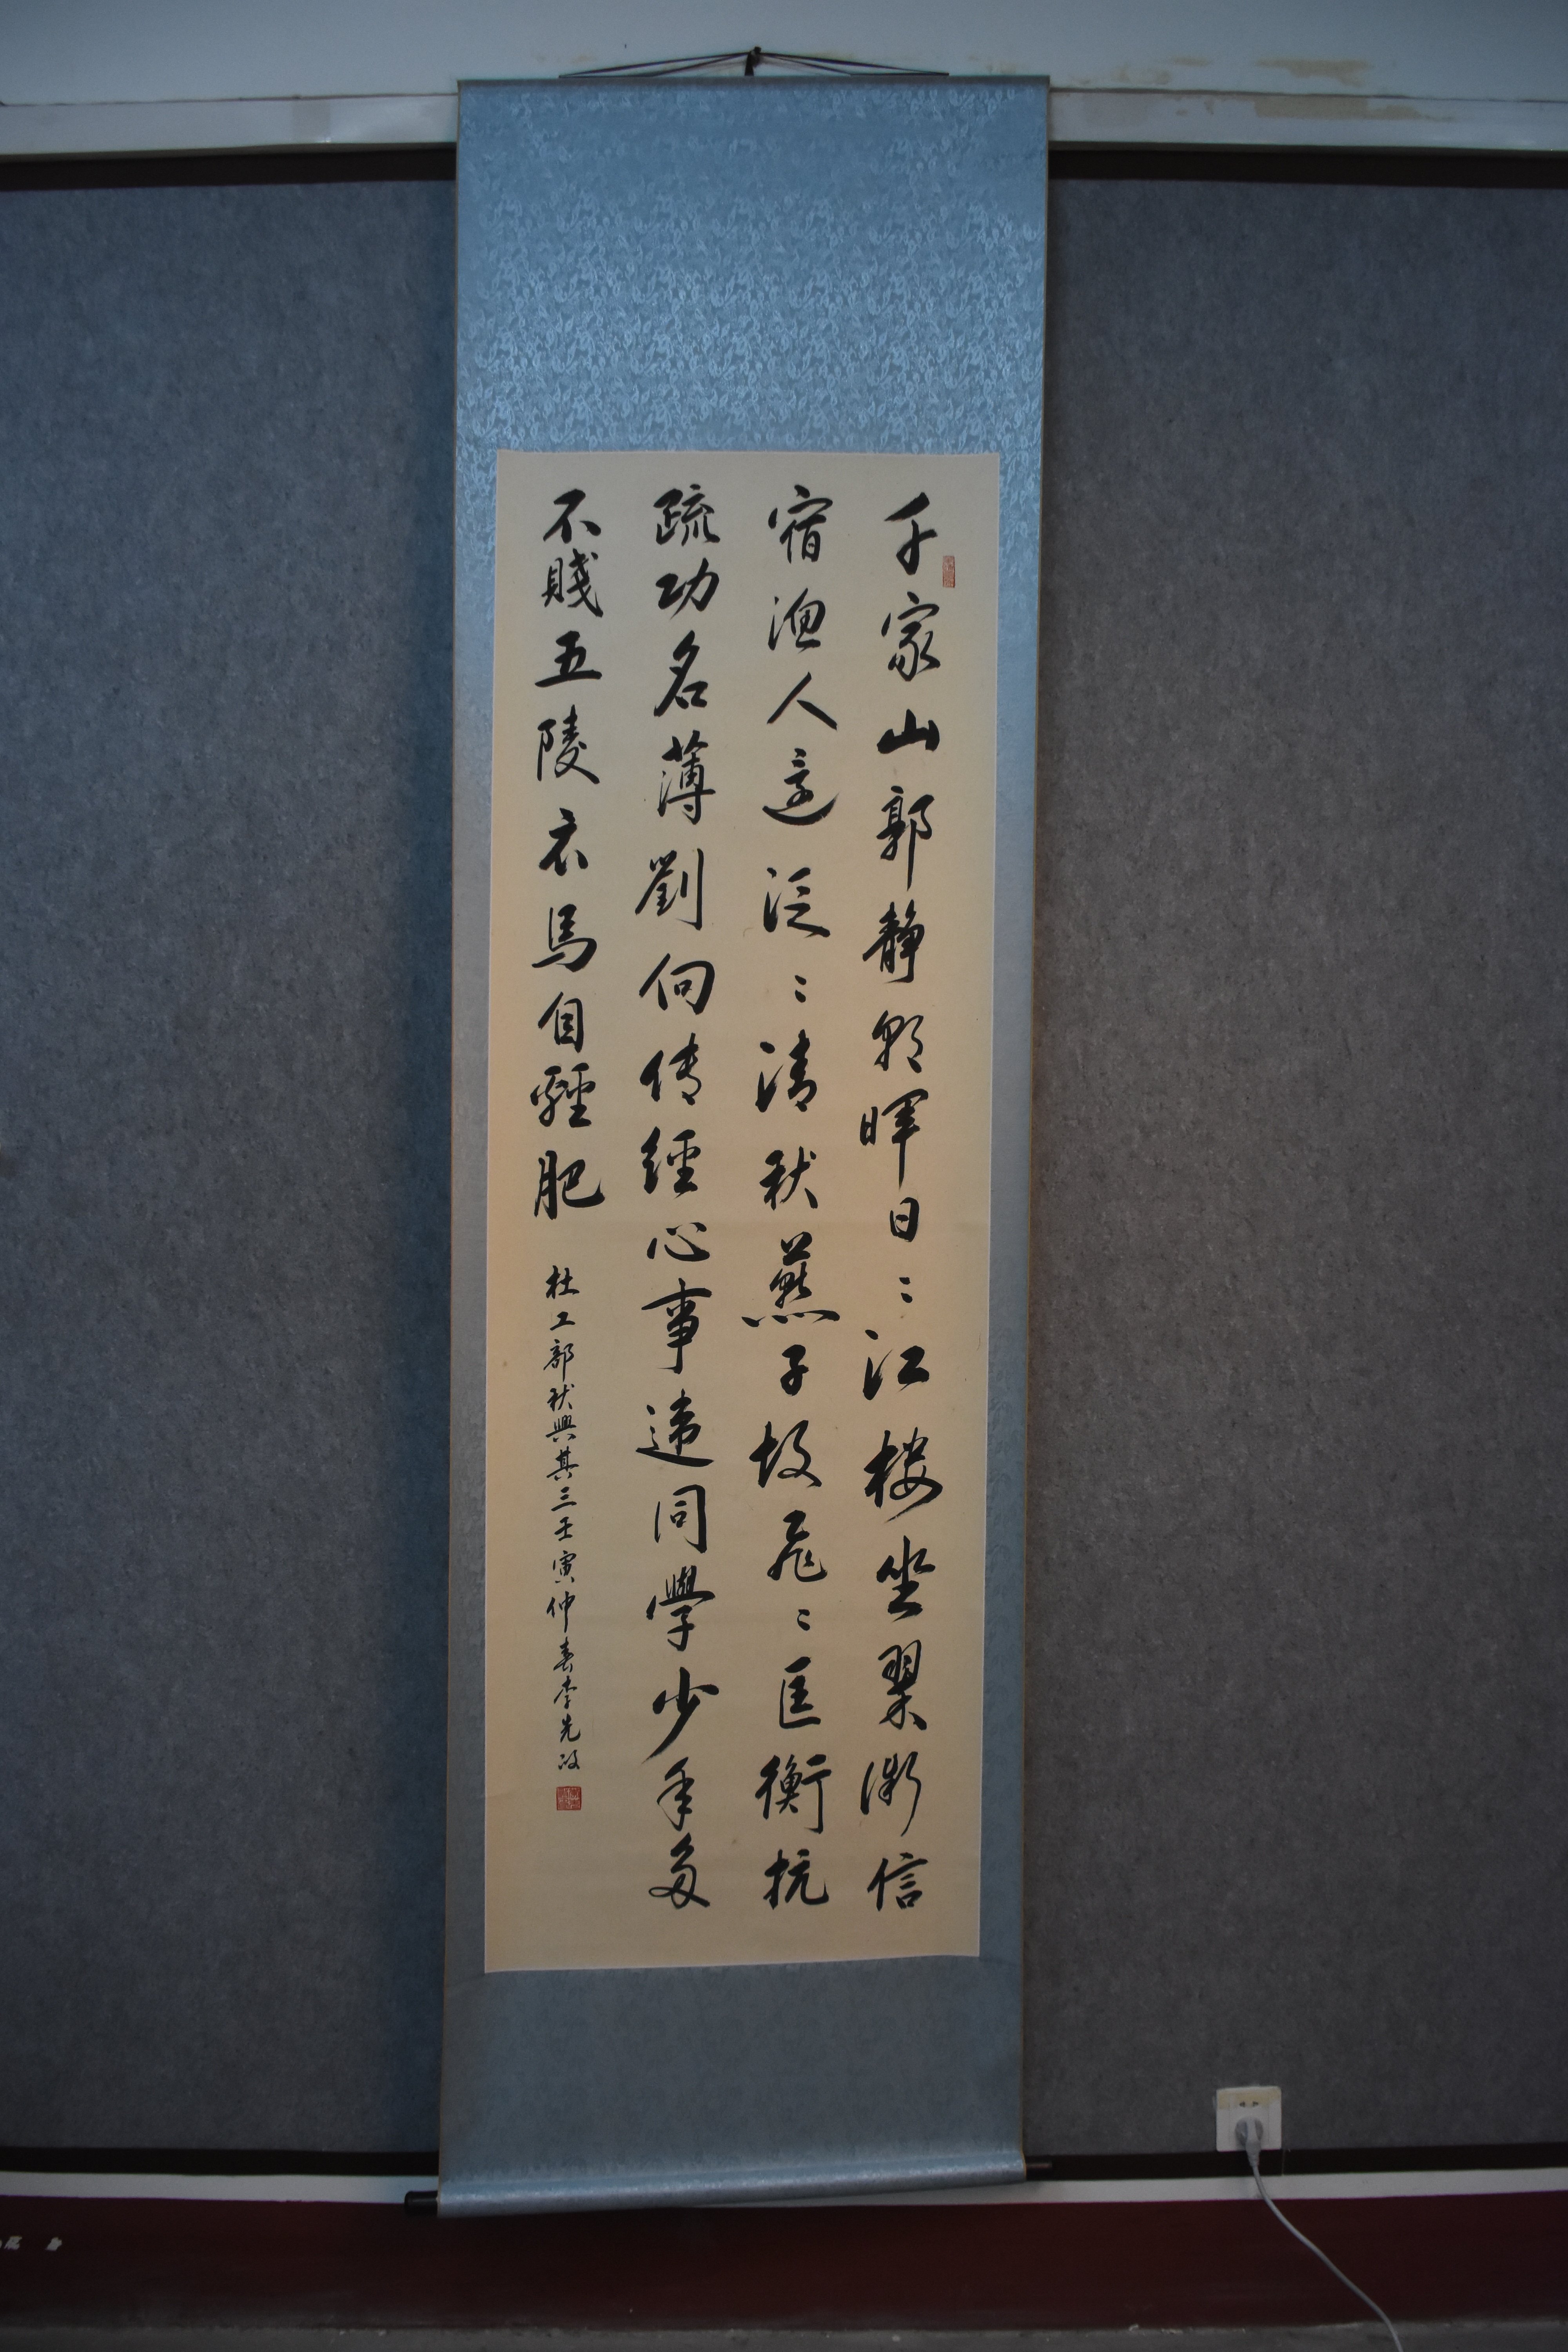 千家山郭静朝暉日〻江楼坐翠微信
宿渔人还泛〻清秋燕子故飛〻匡衡抗
疏功名薄劉向傳經心事違同學少年多
不賤五陵衣馬自輕肥
杜工部秋興其三壬寅仲春李先